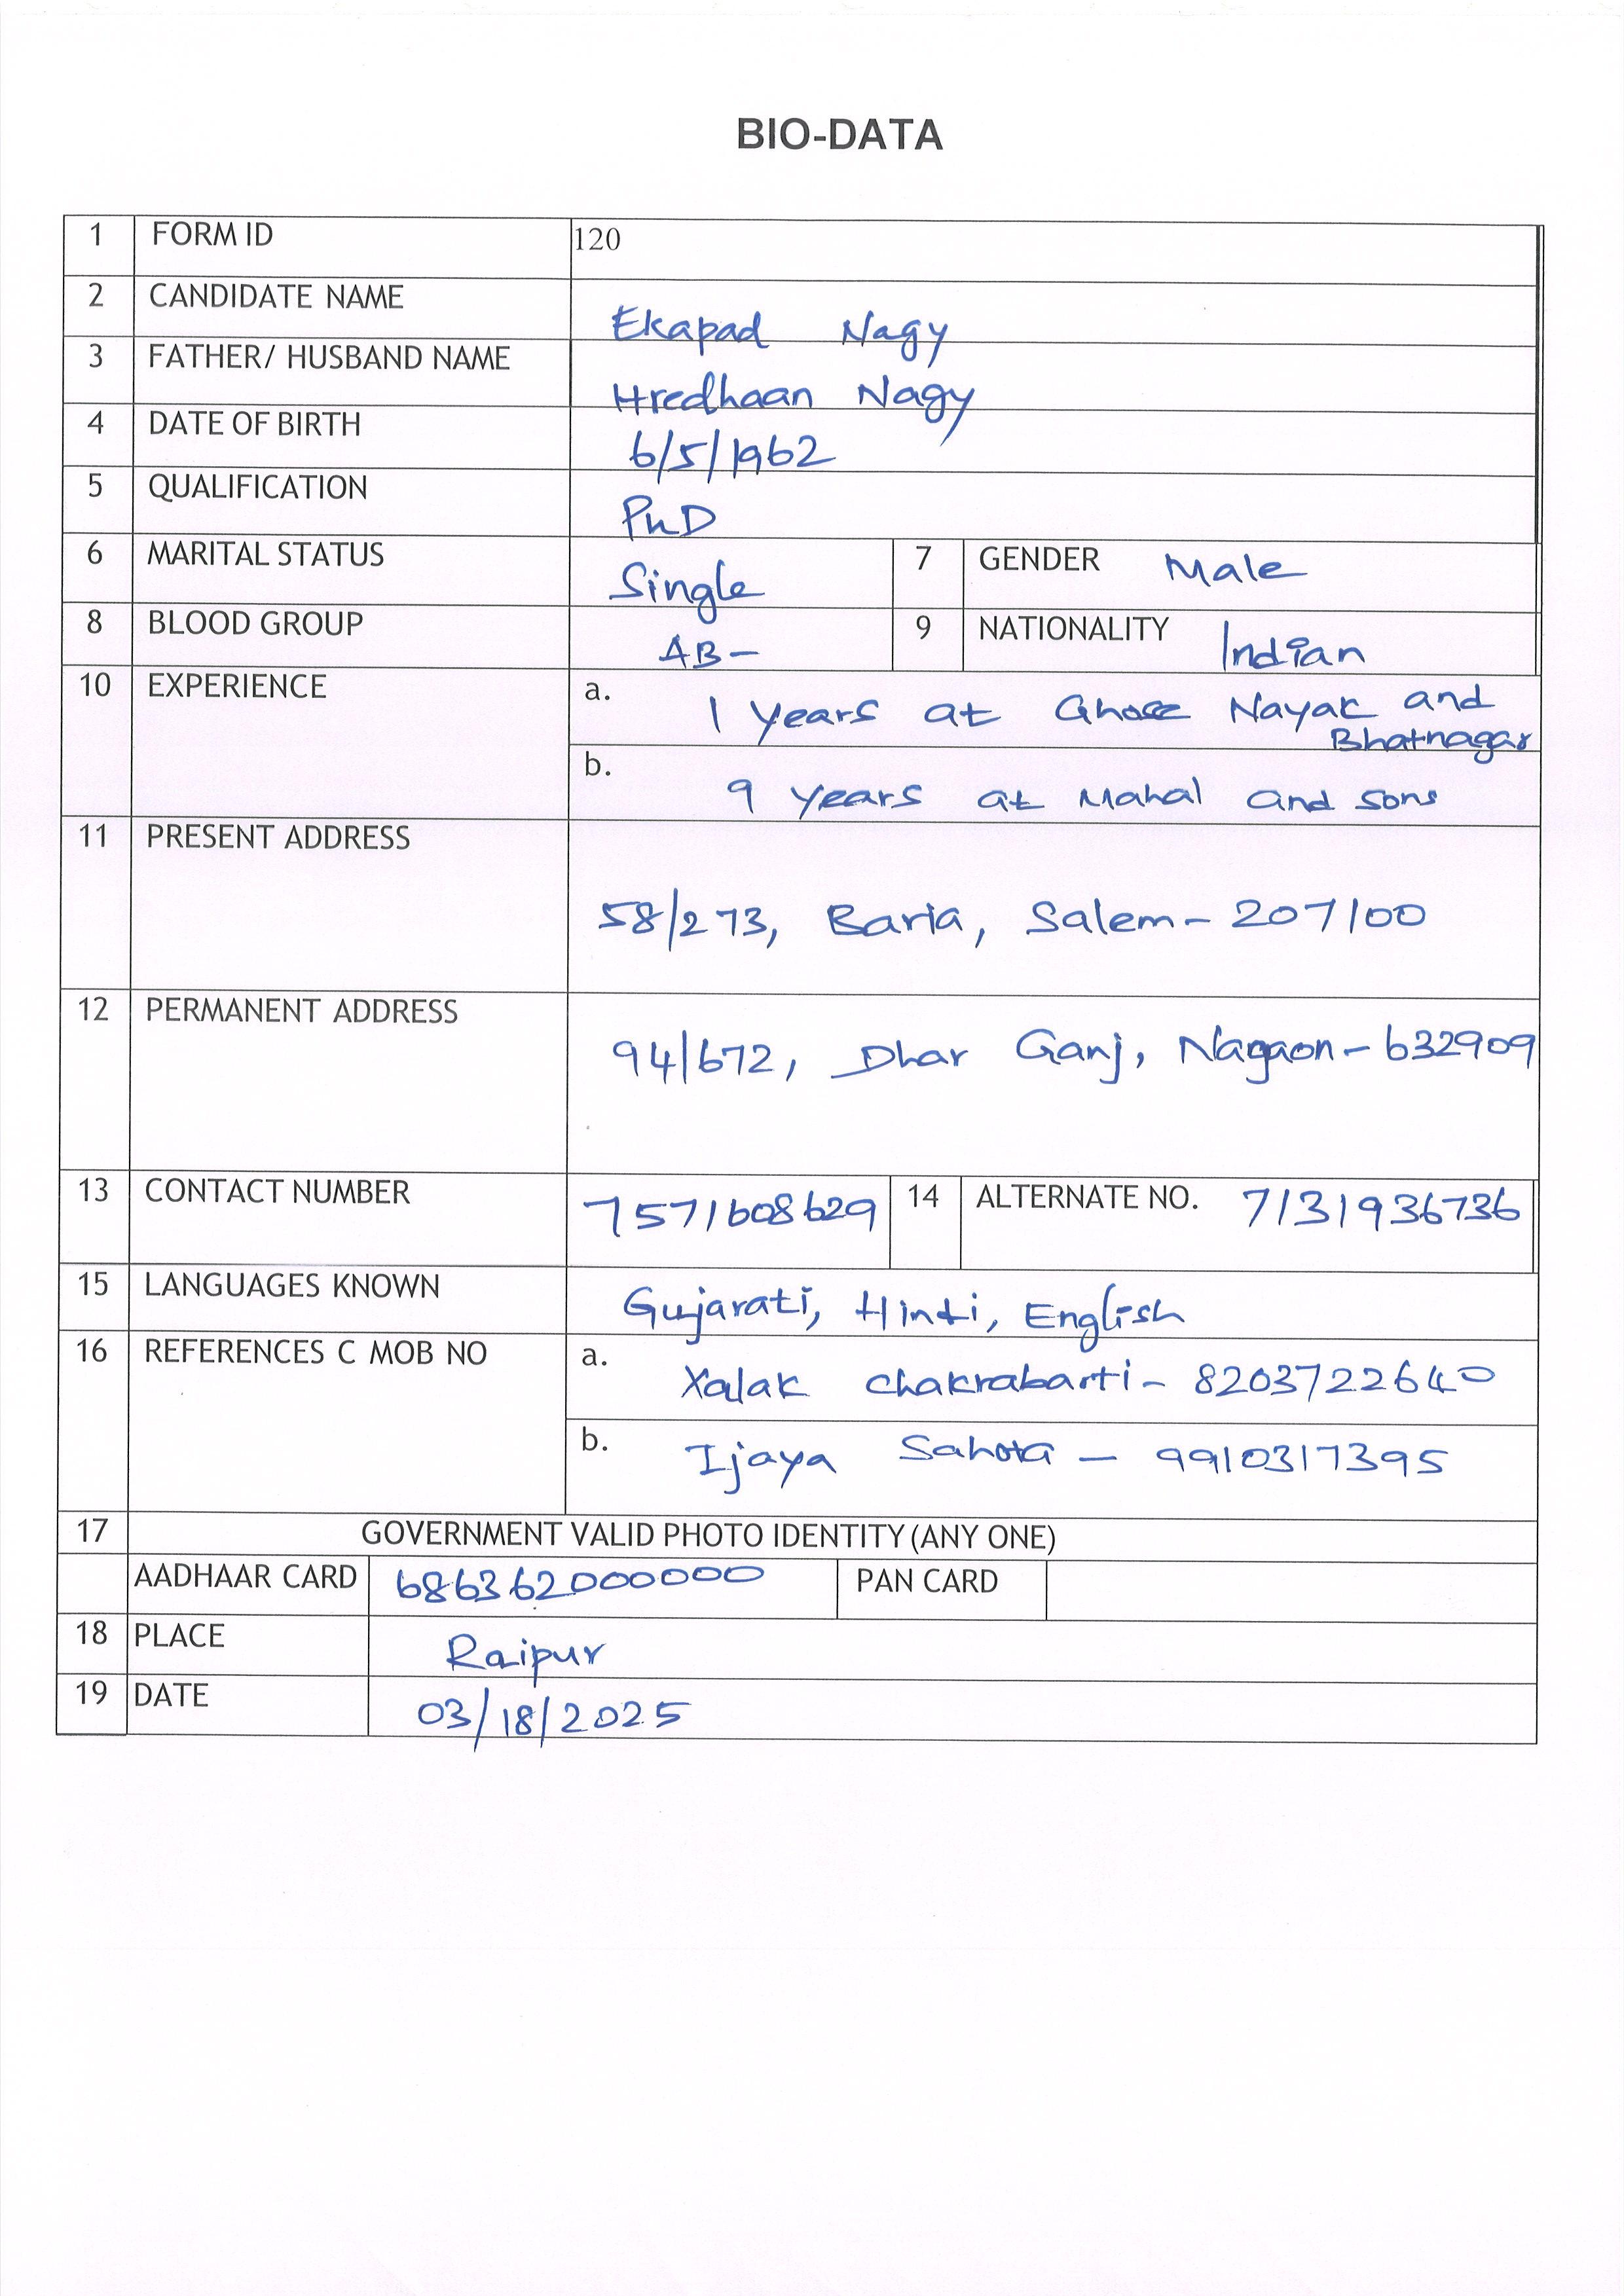 BIO-DATA
1 FORM ID 120
2 CANDIDATE NAME Ekapad Nagy
3 FATHER/ HUSBAND NAME Hredhaan Nagy
4 DATE OF BIRTH 6/5/1962
5 QUALIFICATION PhD
6 MARITAL STATUS Single 7 GENDER Male
8 BLOOD GROUP AB- 9 NATIONALITY Indian
10 EXPERIENCE a. 1 years at Ghose Nayak and
Bhatnagar
b. 9 years at Mahal and sons
11 PRESENT ADDRESS
58/273, Baria, Salem- 207100
12 PERMANENT ADDRESS
94/672, Dhar Ganj, Nagaon- 632909
13 CONTACT NUMBER 7571608629 14 ALTERNATE NO. 7131936736
15 LANGUAGES KNOWN Gujarati, Hindi, English
16 REFERENCES C MOB NO a. Xalak Chakrabarti- 8203722640
b. Ijaya Sahota - 9910317395
17 GOVERNMENT VALID PHOTO IDENTITY (ANY ONE)
AADHAAR CARD 686362000000 PAN CARD
18 PLACE Raipur
19 DATE 03/18/2025